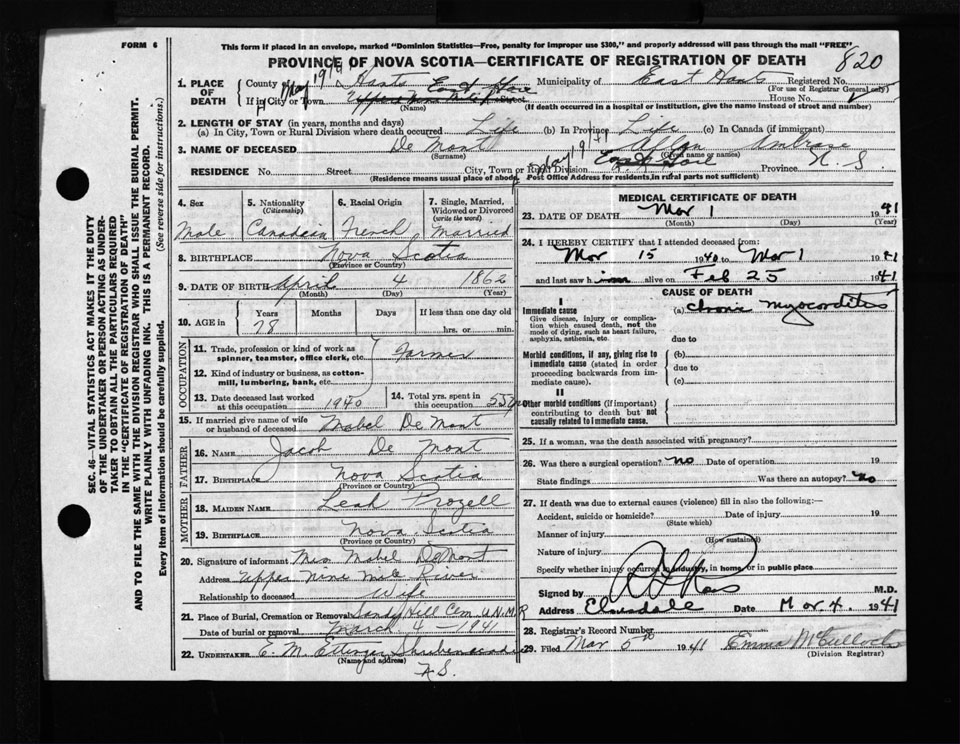 FORM 6
This form if placed in an envelope, marked "Dominion Statistics—Free, penalty for improper use $300," and properly addressed will pass through the mail "FREE"
PROVINCE OF NOVA SCOTIA—CERTIFICATE OF REGISTRATION OF DEATH 820
1. PLACE OF DEATH County Hants East Gore Municipality of East Hants Registered No.
(For use of Registrar General only)
If in City or Town Upper Nine Mile River House No.
(Name) (If death occurred in a hospital or institution, give the name instead of street and number)
2. LENGTH OF STAY (in years, months and days)
(a) In City, Town or Rural Division where death occurred Life (b) In Province Life (c) In Canada (if immigrant)
3. NAME OF DECEASED De Mont Ambrose
(Surname) (Given name or names)
RESIDENCE No. Street City, Town or Rural Division East Gore Province N. S
(Residence means usual place of abode. Post Office Address for residents in rural parts not sufficient)
4. Sex Male
5. Nationality (Citizenship) Canadian
6. Racial Origin French
7. Single, Married, Widowed or Divorced (write the word) Married
8. BIRTHPLACE Nova Scotia
(Province or Country)
9. DATE OF BIRTH April 4 1862
(Month) (Day) (Year)
10. AGE in Years 78 Months Days If less than one day old hrs. or min.
OCCUPATION
11. Trade, profession or kind of work as spinner, teamster, office clerk, etc. Farmer
12. Kind of industry or business, as cotton-mill, lumbering, bank, etc.
13. Date deceased last worked at this occupation 1940
14. Total yrs. spent in this occupation 55
15. If married give name of wife or husband of deceased Mabel De Mont
FATHER
16. NAME Jacob De Mont
17. BIRTHPLACE Nova Scotia
(Province or Country)
MOTHER
18. MAIDEN NAME Leah
19. BIRTHPLACE Nova Scotia
(Province or Country)
20. Signature of informant Mrs Mabel DeMont
Address Upper Nine Mile River
Relationship to deceased Wife
21. Place of Burial, Cremation or Removal Sandy Hill Cem. U.N.M.R
Date of burial or removal March 4 - 1941
22. UNDERTAKER E. M. Ettinger Shubenacadie
(Name and address) N.S.
MEDICAL CERTIFICATE OF DEATH
23. DATE OF DEATH Mar 1 1941
(Month) (Day) (Year)
24. I HEREBY CERTIFY that I attended deceased from:
Mar 15 1940 to Mar 1 1941
and last saw him alive on Feb 25 1941
CAUSE OF DEATH
I
Immediate cause
Give disease, injury or complication which caused death, not the mode of dying, such as heart failure, asphyxia, asthenia, etc.
(a) chronic myocarditis
due to
Morbid conditions, if any, giving rise to immediate cause (stated in order proceeding backwards from immediate cause).
(b)
due to
(c)
II
Other morbid conditions (if important) contributing to death but not causally related to immediate cause.
25. If a woman, was the death associated with pregnancy?
26. Was there a surgical operation? no Date of operation 19
State findings Was there an autopsy? no
27. If death was due to external causes (violence) fill in also the following:—
Accident, suicide or homicide? Date of injury 19
(State which)
Manner of injury
(How sustained)
Nature of injury
Specify whether injury occurred in industry, in home, or in public place
Signed by M.D.
Address Elmsdale Date Mar 4. 1941
28. Registrar's Record Number
29. Filed Mar 1941 Emma McCulloch
(Division Registrar)
SEC. 46—VITAL STATISTICS ACT MAKES IT THE DUTY
OF THE UNDERTAKER OR PERSON ACTING AS UNDER-
TAKER TO OBTAIN ALL THE PARTICULARS REQUIRED
IN THE "CERTIFICATE OF REGISTRATION OF DEATH"
AND TO FILE THE SAME WITH THE DIVISION REGISTRAR WHO SHALL ISSUE THE BURIAL PERMIT.
WRITE PLAINLY WITH UNFADING INK. THIS IS A PERMANENT RECORD.
Every item of information should be carefully supplied. (See reverse side for instructions.)